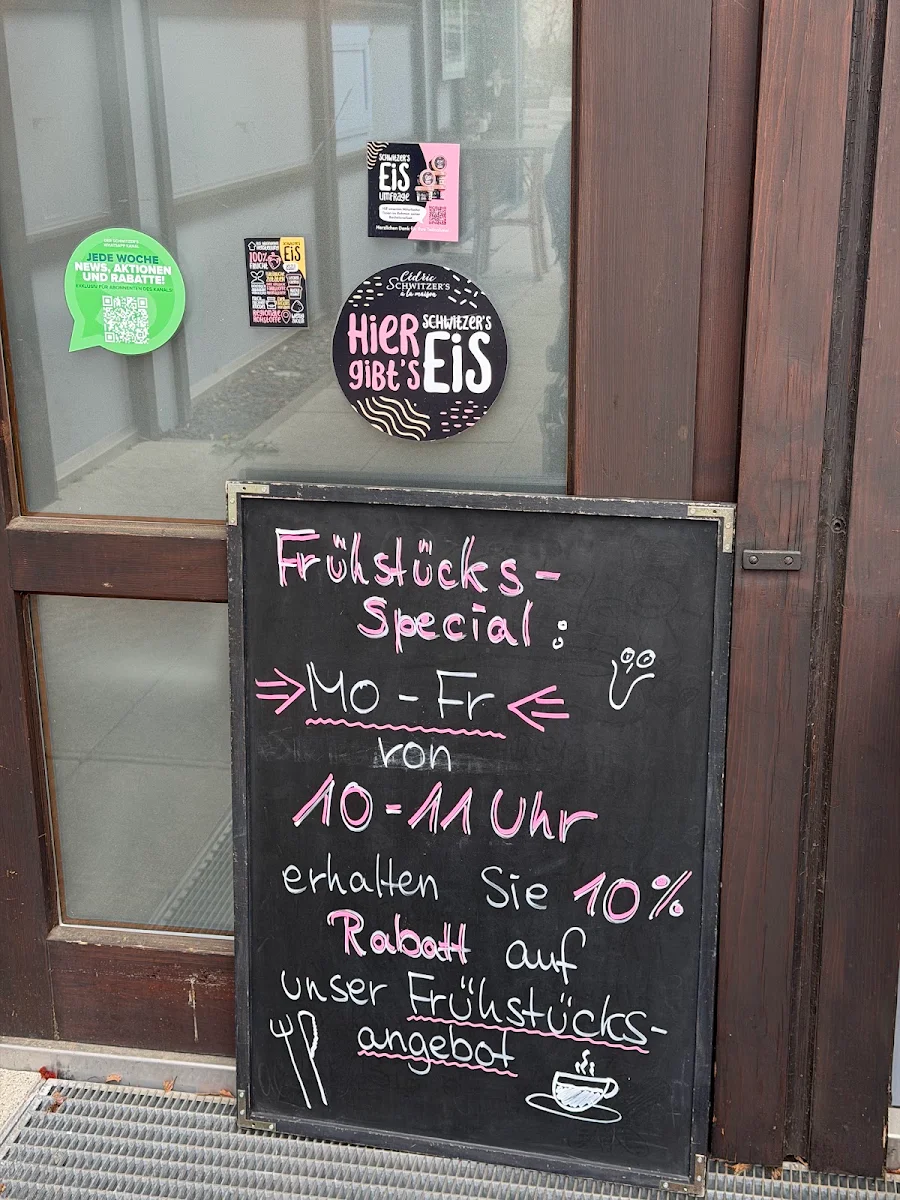 SCHWITZER'S
EIS
UMFRAGE
JEDE WOCHE
NEWS, AKTIONEN
UND RABATTE!
EXKLUSIV FÜR ABONNENTEN DES KANALS!
100%
EIS
REGIONALE
ROHSTOFFE
Cédric
SCHWITZER'S
à la maison
HIER
gibt's
SCHWITZER'S
EIS
Frühstücks-
Special:
Mo - Fr
von
10 - 11 Uhr
erhalten Sie 10%
Rabatt auf
unser Frühstücks-
angebot